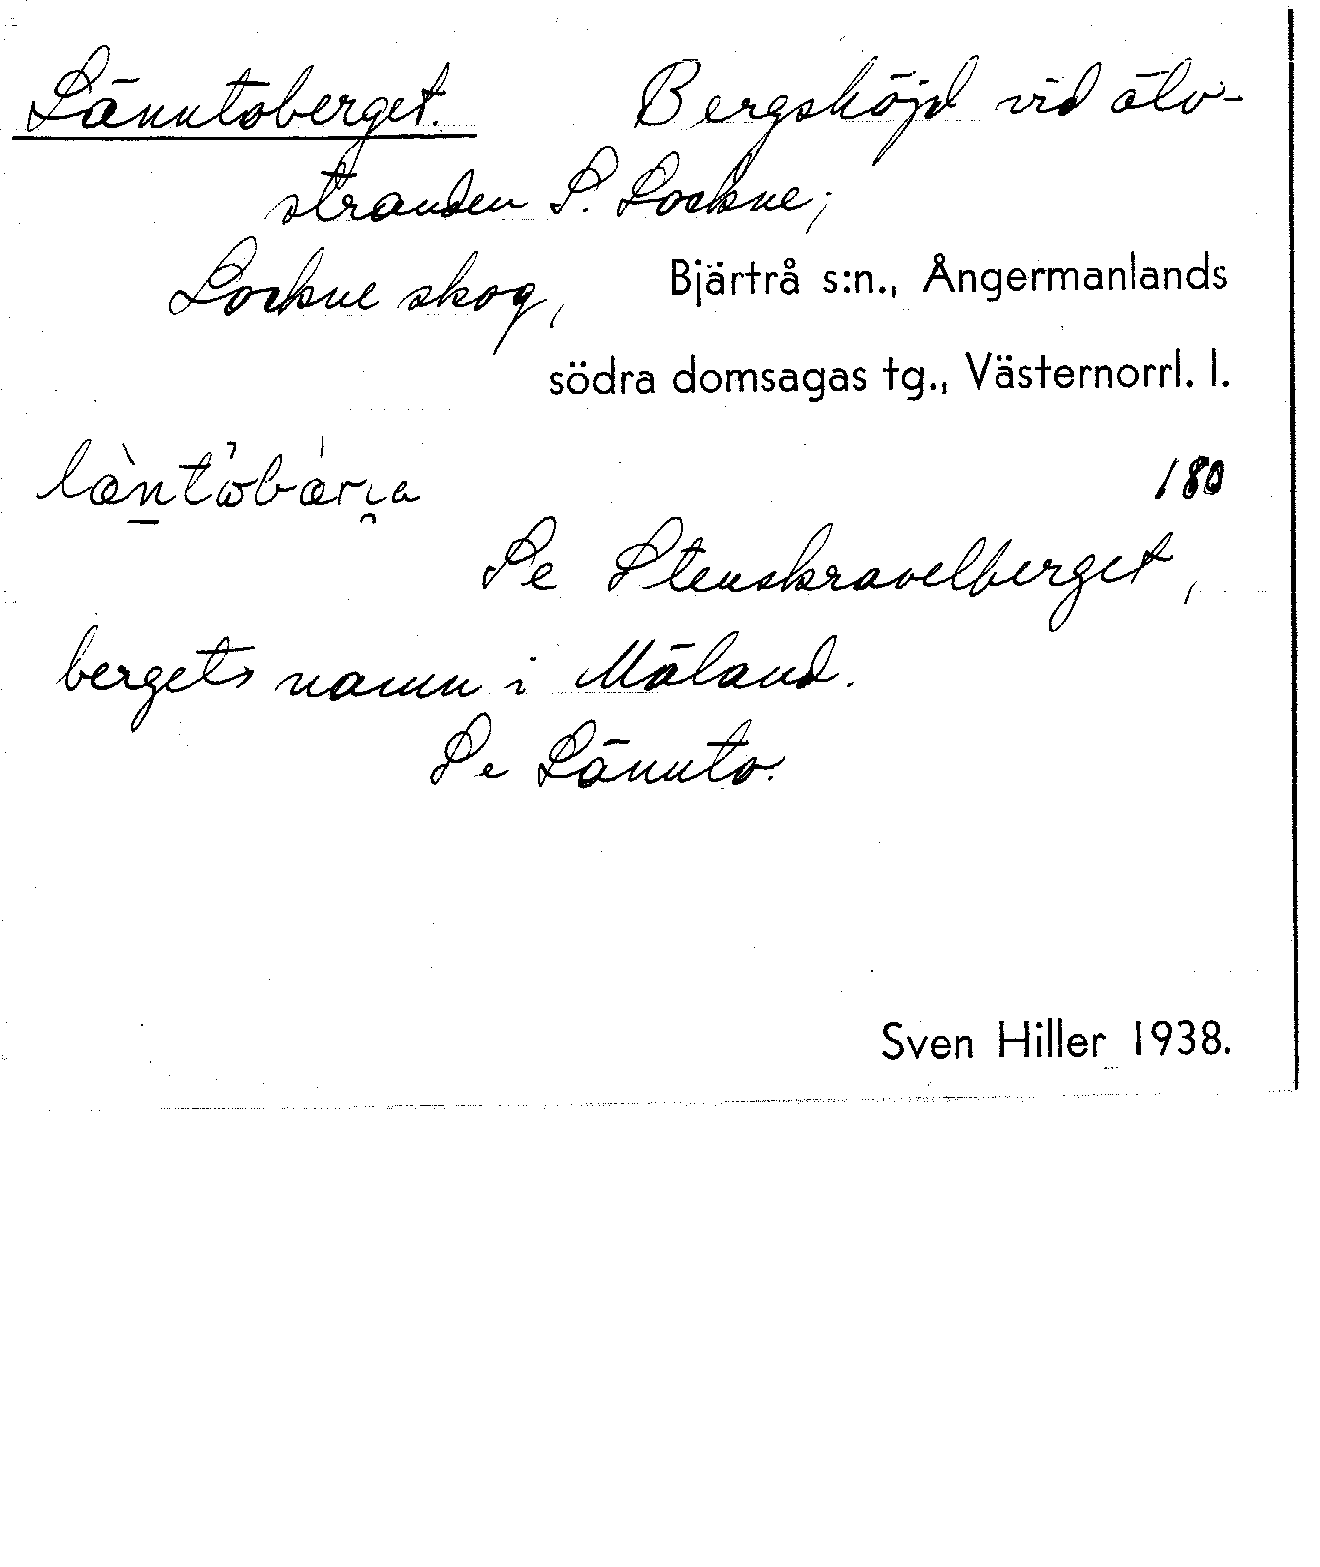 Länntoberget. Bergshöjd vid älv-
stranden S. Lockne;
Lockne skog, Bjärtrå s:n., Ångermanlands
södra domsagas tg., Västernorrl. l.
180
Se Stenskravelberget,
bergets namn i Mäland.
Se Lännto.
Sven Hiller 1938.